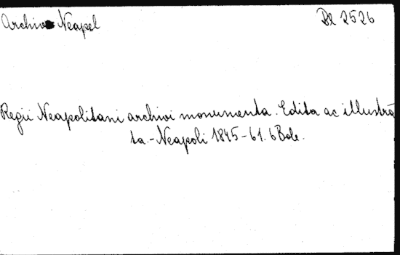 Archiv Neapel
Bl 2526
Regii Neapolitani archivi monumenta. Edita ac illustra
ta - Neapoli 1845-61. 6 Bde.